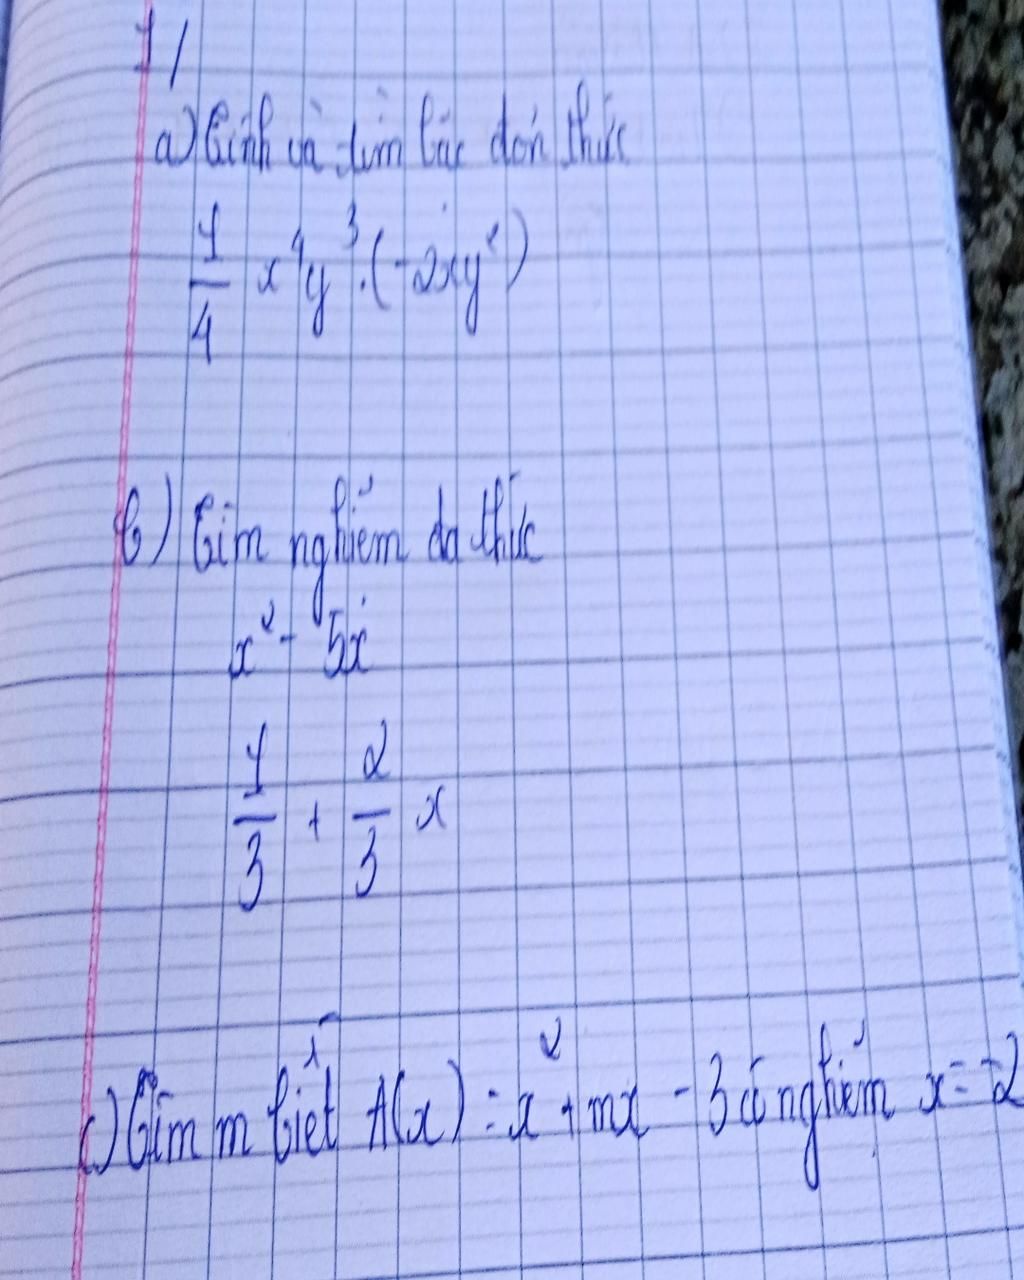 1/
a) Tính và tìm bậc đơn thức
1/4 x⁴y³.(-2xy²)
b) Tìm nghiệm đa thức
x² - 5x
1/3 + 2/3 x
c) Tìm m biết A(x) = x² + mx - 3 có nghiệm x = -2